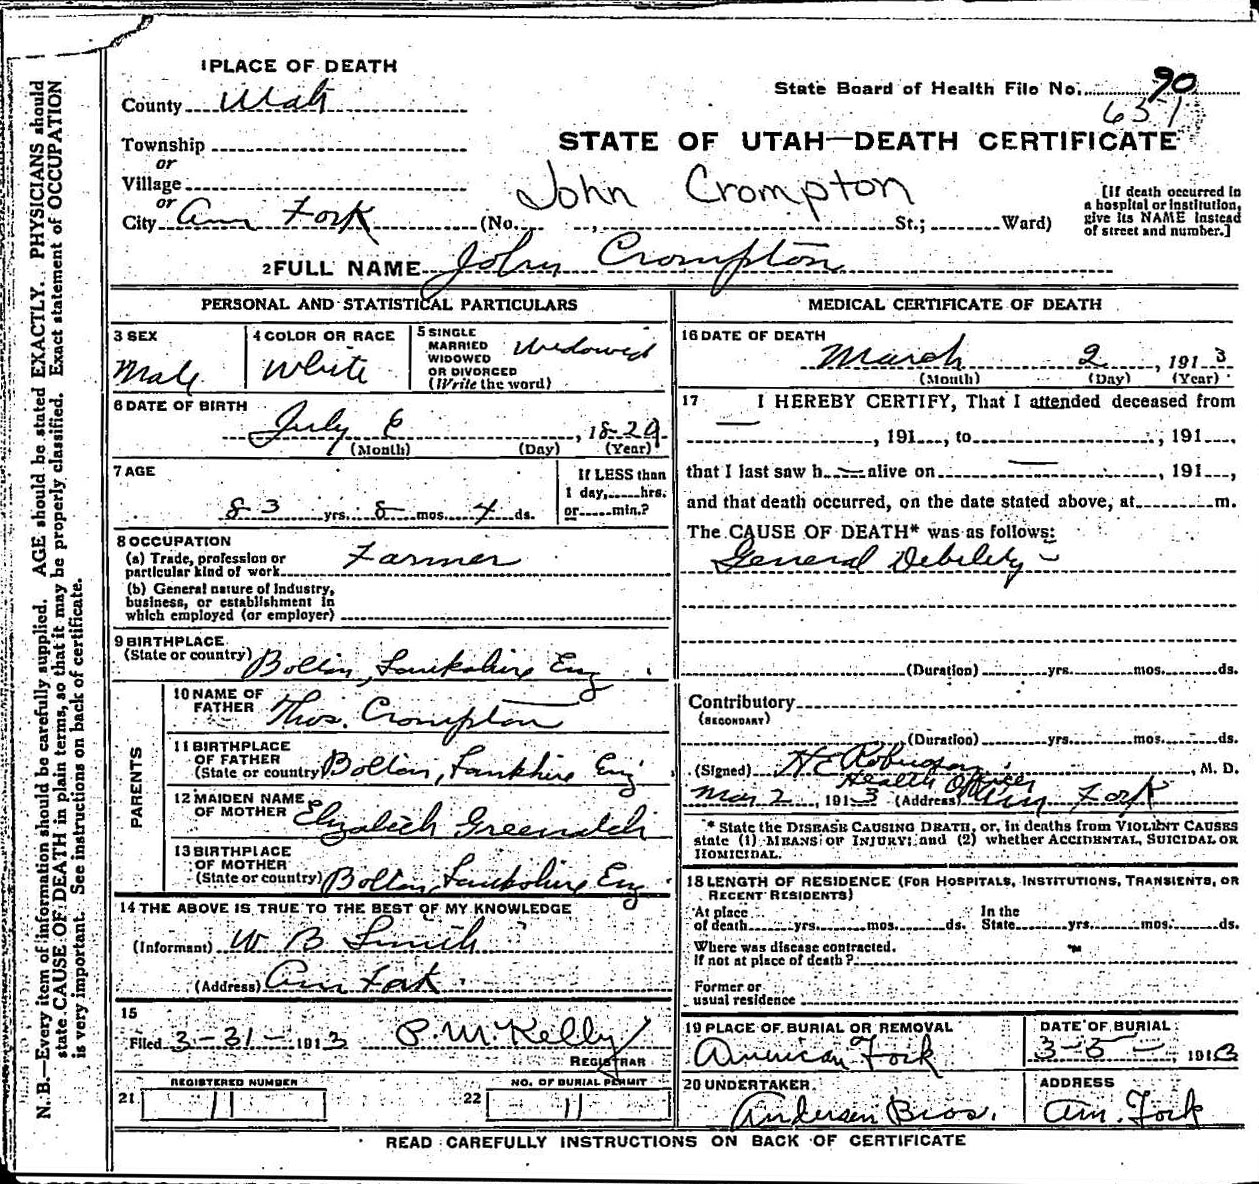 1 PLACE OF DEATH
County Utah
State Board of Health File No. 90
651
Township
or
Village
or
City Am Fork (No. , St.; Ward)
STATE OF UTAH—DEATH CERTIFICATE
John Crompton
[If death occurred in
a hospital or institution,
give its NAME instead
of street and number.]
2 FULL NAME John Crompton
PERSONAL AND STATISTICAL PARTICULARS
3 SEX
Male
4 COLOR OR RACE
White
5 SINGLE
MARRIED
WIDOWED
OR DIVORCED
(Write the word)
Widowed
6 DATE OF BIRTH
July 6, 1829
(Month) (Day) (Year)
7 AGE
83 yrs. 8 mos. 4 ds.
If LESS than
1 day, hrs.
or min.?
8 OCCUPATION
(a) Trade, profession or
particular kind of work Farmer
(b) General nature of Industry,
business, or establishment in
which employed (or employer)
9 BIRTHPLACE
(State or country) Bolton, Lankshire Eng
PARENTS
10 NAME OF
FATHER Thos. Crompton
11 BIRTHPLACE
OF FATHER
(State or country Bolton, Lankhire Eng
12 MAIDEN NAME
OF MOTHER Elizabeth Greenalch
13 BIRTHPLACE
OF MOTHER
(State or country) Bolton, Lankshire Eng
14 THE ABOVE IS TRUE TO THE BEST OF MY KNOWLEDGE
(Informant) W B Smith
(Address) Am Fork
15
Filed 3-31- 1913 P. M. Kelly
REGISTRAR
REGISTERED NUMBER
21 11
NO. OF BURIAL PERMIT
22 11
MEDICAL CERTIFICATE OF DEATH
16 DATE OF DEATH
March 2, 1913
(Month) (Day) (Year)
17 I HEREBY CERTIFY, That I attended deceased from
, 191 , to , 191 ,
that I last saw h alive on , 191 ,
and that death occurred, on the date stated above, at m.
The CAUSE OF DEATH* was as follows:
General Debility
(Duration) yrs. mos. ds.
Contributory
(SECONDARY)
(Duration) yrs. mos. ds.
(Signed) H E Robinson, M. D.
Health Officer
Mar 2, 1913 (Address) Am Fork
* State the DISEASE CAUSING DEATH, or, in deaths from VIOLENT CAUSES
state (1) MEANS OF INJURY; and (2) whether ACCIDENTAL, SUICIDAL OR
HOMICIDAL.
18 LENGTH OF RESIDENCE (FOR HOSPITALS, INSTITUTIONS, TRANSIENTS, OR
RECENT RESIDENTS)
At place
of death yrs. mos. ds.
In the
State yrs. mos. ds.
Where was disease contracted.
If not at place of death?
Former or
usual residence
19 PLACE OF BURIAL OR REMOVAL
American Fork
DATE OF BURIAL
3-5- 1913
20 UNDERTAKER
Andersen Bros.
ADDRESS
Am. Fork
READ CAREFULLY INSTRUCTIONS ON BACK OF CERTIFICATE
N. B.—Every item of information should be carefully supplied. AGE should be stated EXACTLY. PHYSICIANS should
state CAUSE OF DEATH in plain terms, so that it may be properly classified. Exact statement of OCCUPATION
is very important. See instructions on back of certificate.